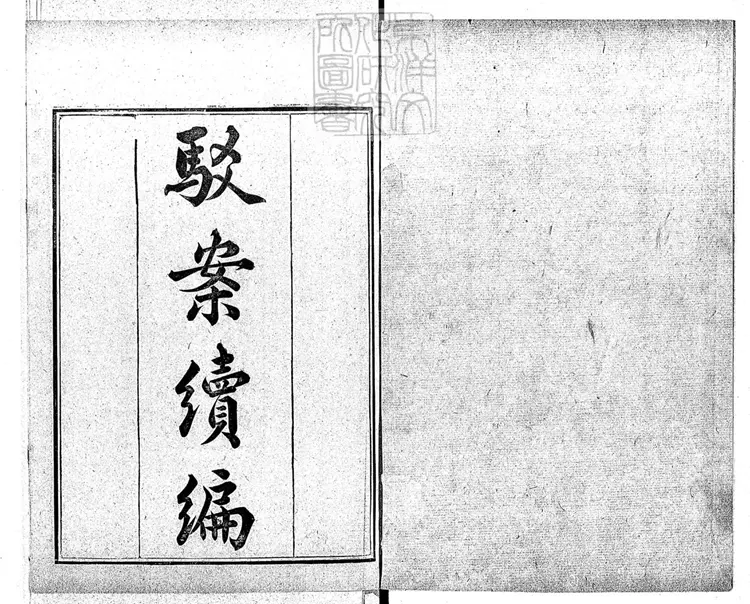 駁案續編
東洋文
化研究
所圖書